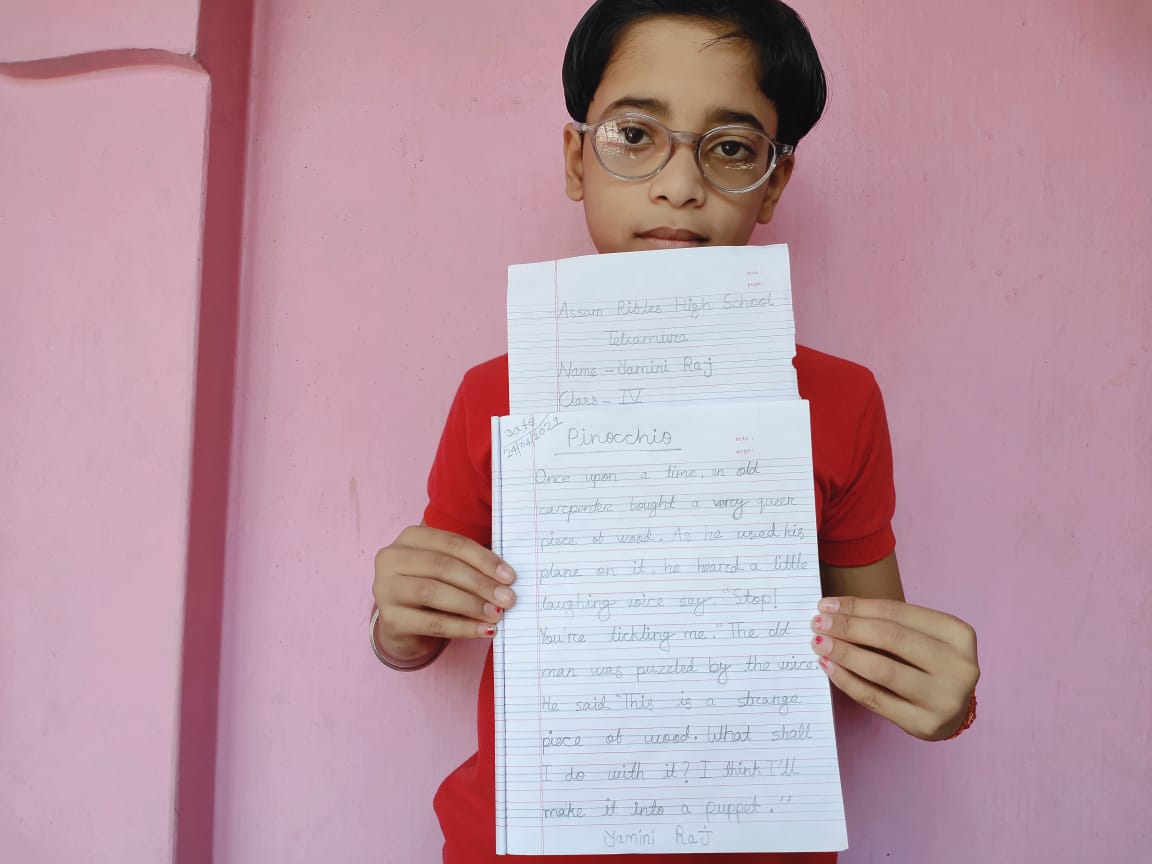 date :
page :
Assam Rifles High School
Teliamura
Name - Yamini Raj
Class - IV
Date
24/04/2021
Pinocchio
date :
page :
Once upon a time, an old
carpenter bought a very queer
piece of wood. As he used his
plane on it, he heard a little
laughing voice say. "Stop!
You're tickling me." The old
man was puzzled by the voice.
He said "This is a strange
piece of wood. What shall
I do with it? I think I'll
make it into a puppet."
Yamini Raj